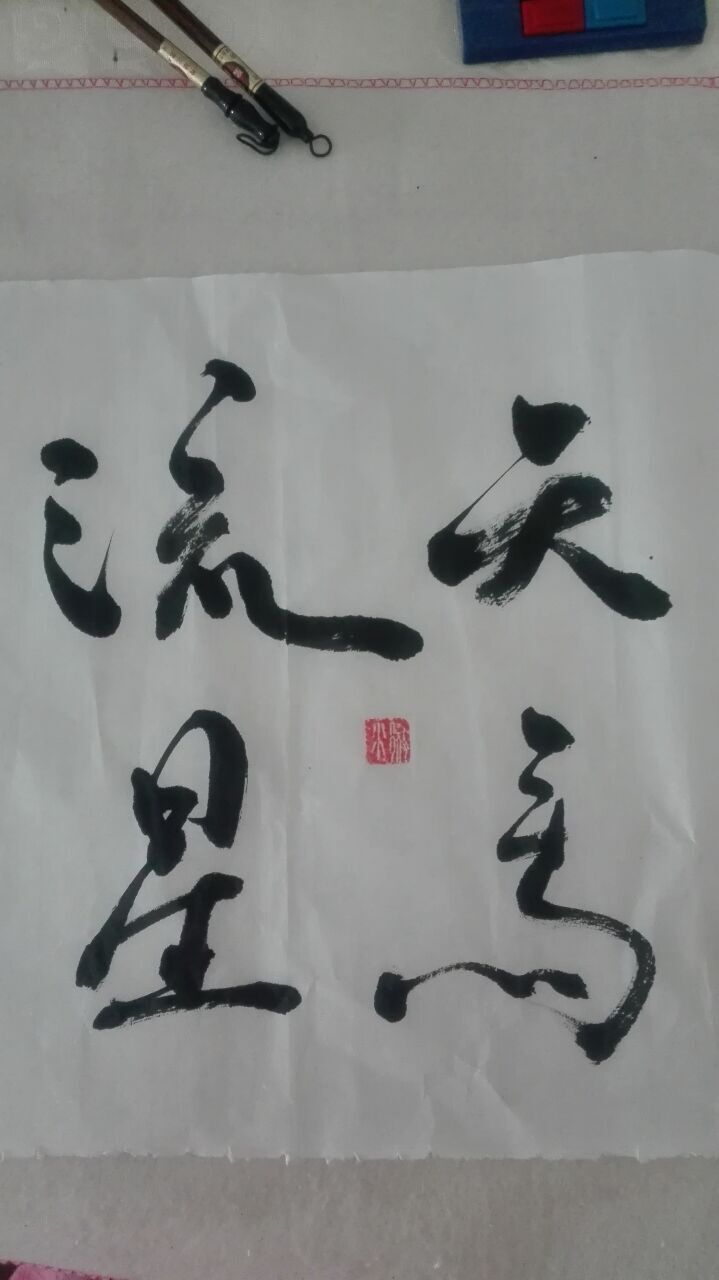 天馬
流星